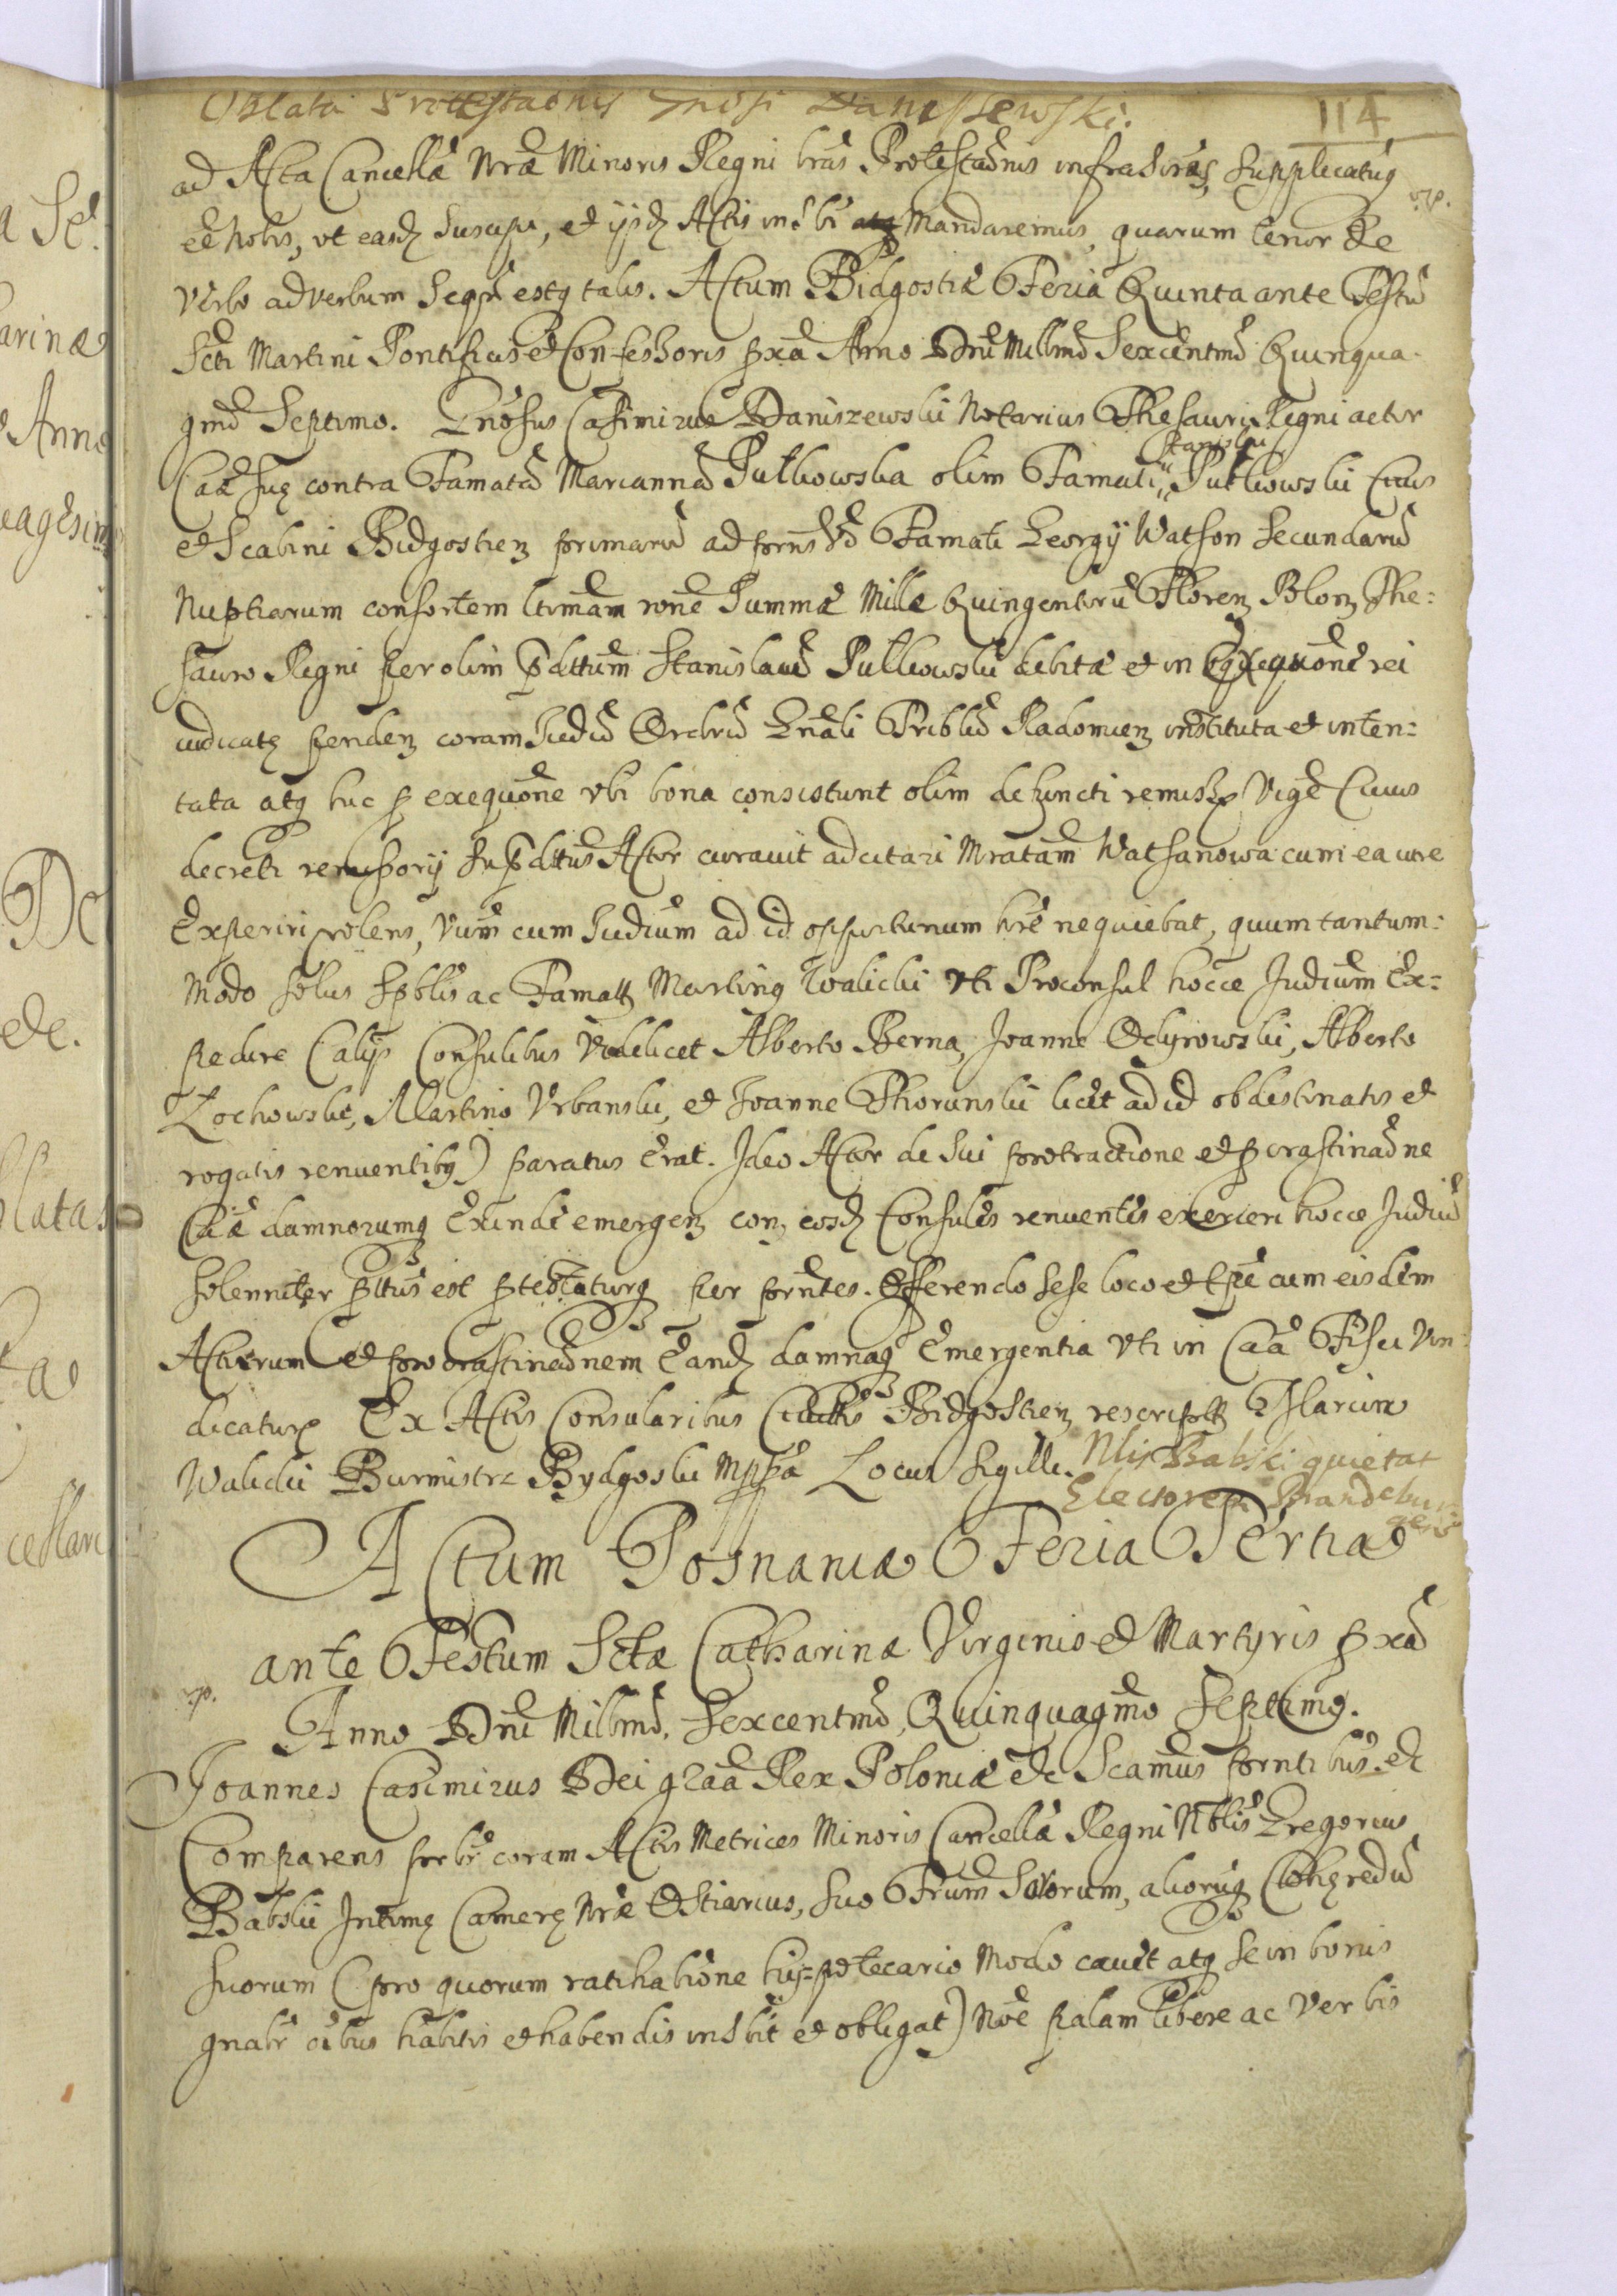 Oblata Protestaonis Gnosi Daniszewski.
114
ad Acta Cancellae Nrae Minoris Regni lras Protestaonis infrascriptas, Supplicatuq
ee Nobis, vt easdz suscipi, et ijsdz Actis inscbi atq Mandaremus, quarum tenor de
Verbo ad verbum Seqr estq talis. Actum Bidgostiae Feria Quinta ante Festu
Scti Martini Pontificis et Confessoris pxa Anno Dni Millmo Sexcentmo Quinqua-
gmo Septimo. Gnosus Casimirus Daniszewski Notarius Thesauri Regni actor
Caae suae contra Famatam Mariannam Putkowska olim Famati Stanislai Putkowski Civis
et Scabini Bidgostien primaru ad prns vo Famati Georgij Watson Secundaru
Nuptiarum consortem ltimam rone Summae Mille Quingentoru Floren Polon The-
sauro Regni per olim pdttum Stanislaum Putkowski debitae et in exequone rei
iudicatae fienden coram Iudio Ordrio Gnali Tribli Radomien instituta et inten-
tata atq huc p exequone vbi bona consistunt olim defuncti remiss Vige Cuius
decreti remissorij supdttus Actor curavit adcitari Mratam Watsanowa cum ea iure
Experiri volens, Verum cum Iudium ad id opportunum hre nequiebat, quum tantum-
modo solus Spblis ac Famatq Martinq Walicki vti Proconsul hocce Iudicium Ex-
pedire (alijs Consulibus videlicet Alberto Berna, Joanne Odyrowski, Alberto
Lochowski, Martino Vrbanski, et Joanne Thorunski licet ad id obdestinatis et
rogatis renuentibq) paratus erat. Ideo Actor de sui protractione et pcrastinaone
Caae damnorumq Exinde emergen con eosdz Consules renuentes exerceri hocce Judiu
solenniter pttus est ptestaturq per prntes. Offerendo sese loco et tpe cum eisdem
Acturum et pro crastinaonem Eandz damnaq Emergentia vti in Caa Fisci Vin-
dicatur Ex Actis Consularibus Ciuittis Bidgostien rescriptq Marcin
Walicki Burmistrz Bydgoski mppa Locus Sigilli.
Nlis Babski quietat
Electorem Brandebur
gen
Actum Posnaniae Feria Tertia
ante Festum Sctae Catharinae Virginis et Martyris pxa
Anno Dni Millmo, Sexcentmo, Quinquagmo Septimo.
Joannes Casimirus Dei graa Rex Poloniae etc Scamus prntibus. etc
Comparens prbr coram Actis Metrices Minoris Cancellae Regni Nblis Gregorius
Babski Intimae Camerae Nrae Ostiarius, suo Frum Sororum, aliorumq Cohaeredu
suorum (pro quorum ratihabitione hij-potecario Modo cauet atq se in bonis
gnalr oibus habitis et habendis inscbit et obligat) Noe palam libere ac verbis